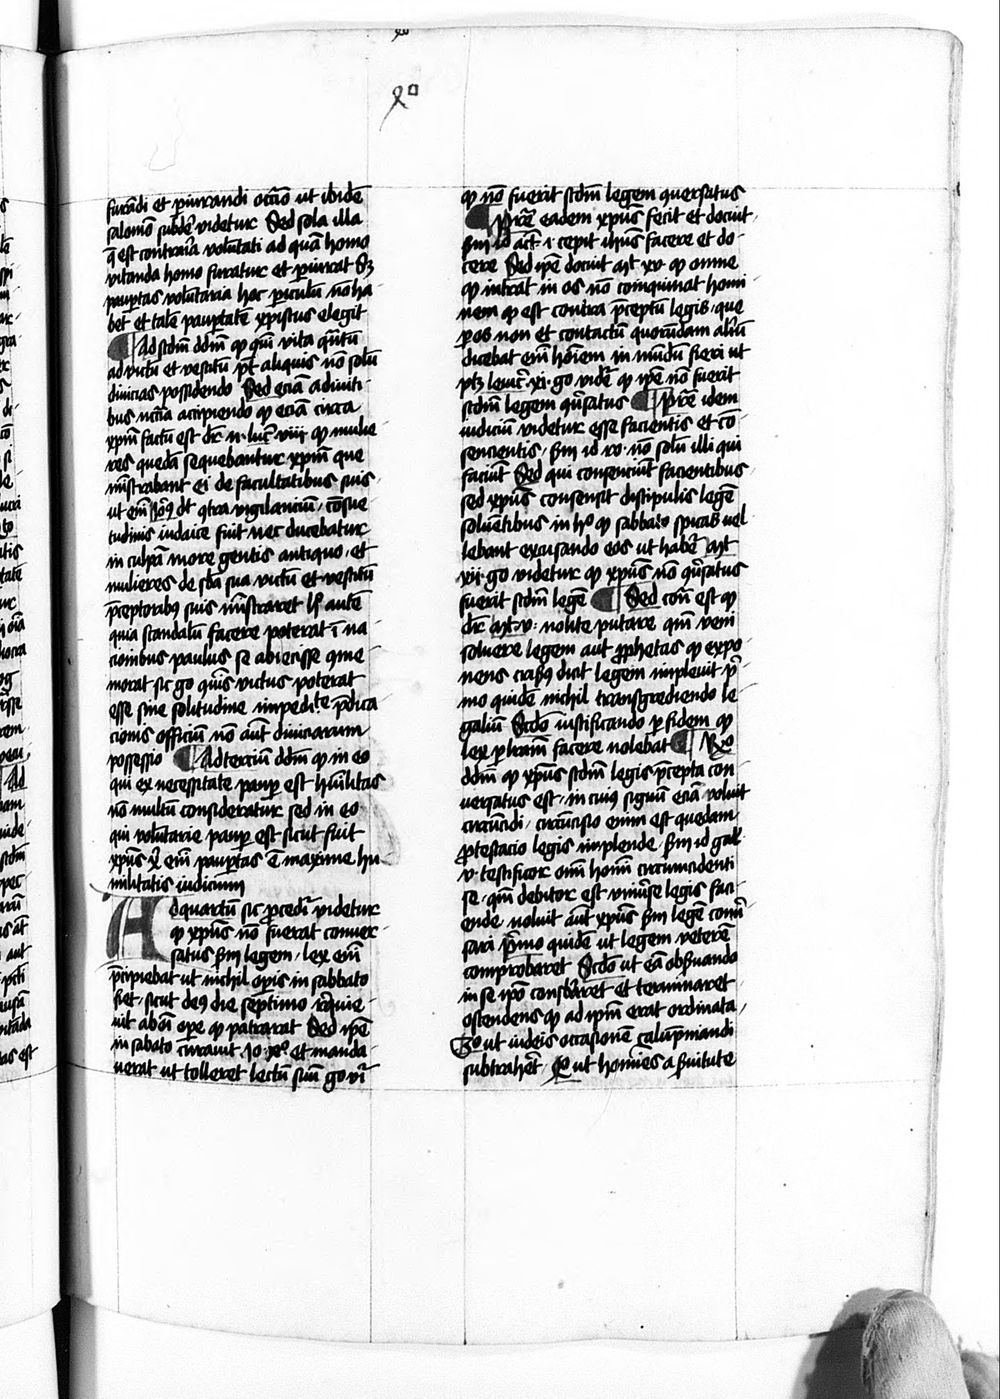 furandi et piurandi occasio ut ibidē
salomō subdē videtur Sed sola illa
q̄ est contraria volūtati ad quā homo
vitanda homo furatur et piurat Sꝫ
paupertas volūtaria hoc periculū nō ha-
bet et talē paupertatē xpistus elegit
Ad scdm̄ ddm̄ qꝫ qm̄ vita q̄ntū
ad victū et vestitū pt̄ aliquis nō solū
divicias possidendo Sed eciā a diviti-
bus nccīa accipiendo qꝫ eciā circa
xpm̄ factū est dr̄ n luc̄ viii qꝫ mulie-
res quedā sequebantur xpm̄ que
mīstrabant ei de facultatibus suis
ut em̄ dt̄ ꝯtra vigilanciū cōsue
tudinis iudaice fuit nec ducebatur
in culpā more gentis antiquo et
mulieres de sbā sua victū et vestitū
p̄ceptoribꝯ suis mīstraret hꝰ autē
quia scandalū facere poterat ī na-
cionibus paulus se abiecisse q̄me-
morat sic gͦ quīs victus poterat
esse sine solitudine impediēte p̄dica
cionis officiū nō aūt diviciarum
possessio Ad terciū ddm̄ qꝫ in eo
qui ex necessitate paup est hūilitas
nō multū consideratur sed in eo
qui volūtarie paup est sicut fuit
xpūs em̄ paupertas ē maxime hu-
militatis iudicium
Ad quartū sic p̄cedīr videtur
qꝫ xpūs nō fuerat conver-
satus scdm̄ legem lex em̄
p̄cipiebat ut nichil opis in sabbato
fiet sicut deꝯ die septimo requie-
vit ab ōni ope qꝫ patrarat Sed ip̄e
in sabato curavit et manda-
verat ut tolleret lectū suū gͦ vr̄
qꝫ nō fuerit scdm̄ legem ꝯversatus
Prē eadem xpūs fecit et docuit
scdm̄ id act̄ i cepit ihūs facere et do-
cere Sed ip̄e docuit mt̄ xv qꝫ omne
qꝫ intrat in os nō coinquinat homi
nem qꝫ est contra p̄ceptū legis que
eos non et contactū quorūdam aīliū
dicebat em̄ hōiem in mūdū fieri ut
ptꝫ levit̄ xi gͦ vidēr qꝫ ip̄e nō fuerit
scdm̄ legem ꝯv̄satus Prē idem
iudiciū videtur esse facientis et cō-
sencientis scdm̄ id rō nō solū illi qui
faciūt Sed qui consenciūt facientibus
sed xpūs consensit discipulis legē
solventibus in hͦ qꝫ sabbato spicas vel
lebant excusando eos ut habēr mt̄
xii gͦ videtur qꝫ xpūs nō ꝯv̄satus
fuerit scdm̄ legē Sed cont̄ est qꝫ
dr̄ mt̄ v nolite putare qm̄ veni
solvere legem aut prophetas qꝫ expo
nens crisꝯ dicit legem implevit p̄-
mo quidē nichil transgrediendo le
galiū Scdo iustificando per fidem qꝫ
lex per lrām facere nolebat Rͦ
ddm̄ qꝫ xpūs scdm̄ legis p̄cepta con-
versatus est in cuiꝯ signū eciā voluit
circūcidi circūcisio enim est quedam
p̄testacio legis implende scdm̄ id gal
v testificor om̄i homī circumcidenti
se qm̄ debitor est univ̄se legis faci-
ende voluit aūt xpūs scdm̄ legē conv̄-
sari p̄mo quidē ut legem veterē
comprobaret Scdo ut eā obs̄vando
in se ip̄o consumaret et terminaret
ostendens qꝫ ad ip̄m erat ordinata
3ͦ ut iudeis occasionē calūpniandi
subtrahēt 4ͦ ut homīes a s̄vitute